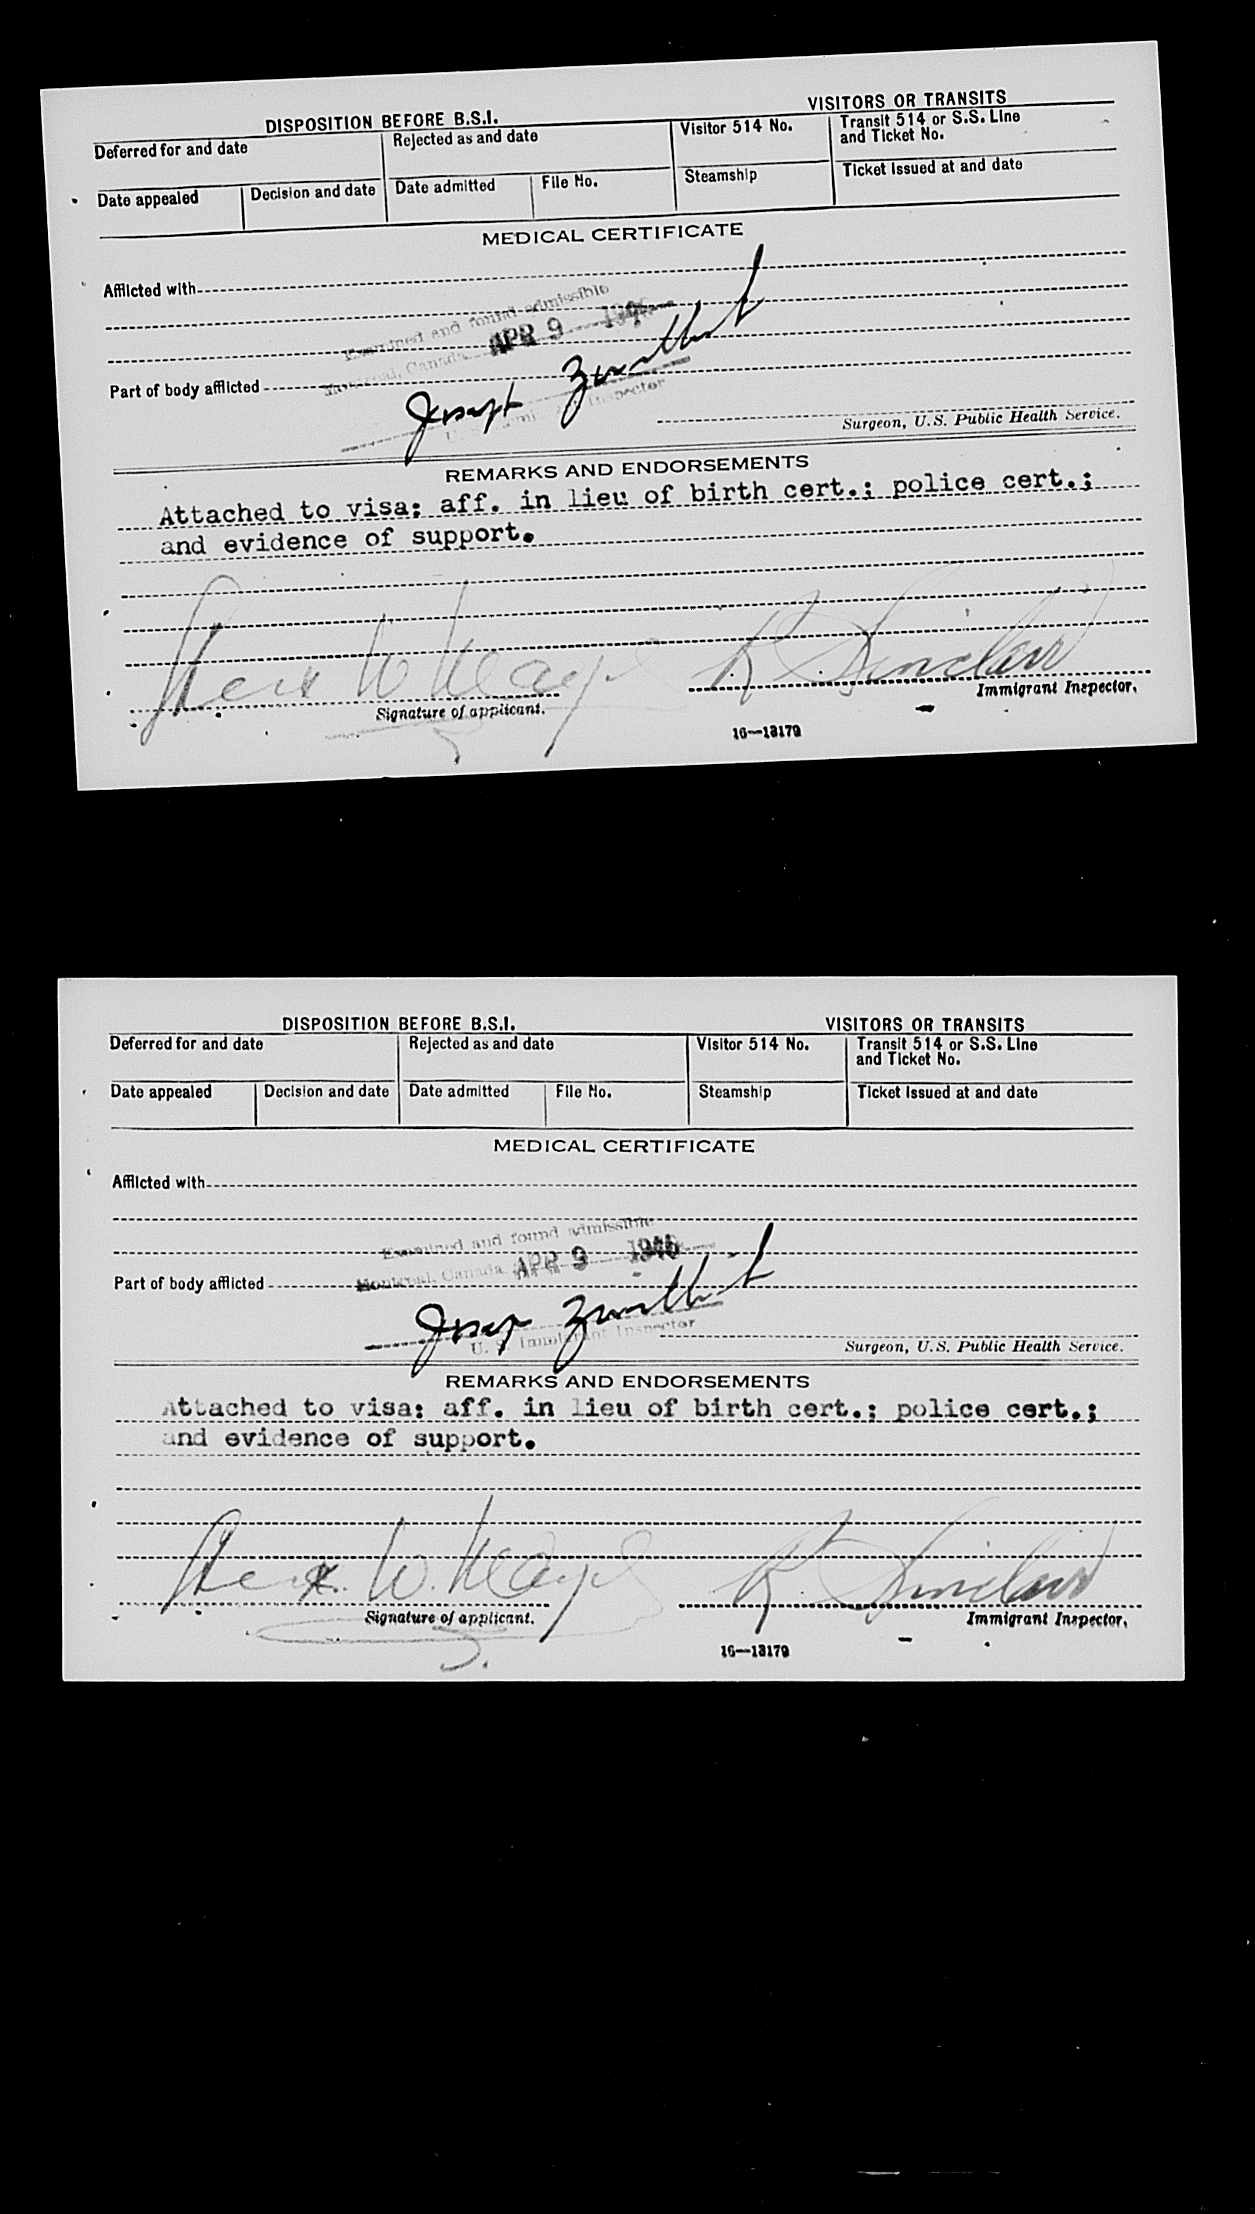 DISPOSITION BEFORE B.S.I.
VISITORS OR TRANSITS
Deferred for and date
Rejected as and date
Visitor 514 No.
Transit 514 or S.S. Line
and Ticket No.
Date appealed
Decision and date
Date admitted
File No.
Steamship
Ticket issued at and date
MEDICAL CERTIFICATE
Afflicted with
Examined and found admissible
Montreal, Canada APR 9
Part of body afflicted
Joseph
Inspector
Surgeon, U.S. Public Health Service.
REMARKS AND ENDORSEMENTS
Attached to visa; aff. in lieu of birth cert.; police cert.;
and evidence of support.
W
R Sinclair
Signature of applicant.
Immigrant Inspector.
16—13179
DISPOSITION BEFORE B.S.I.
VISITORS OR TRANSITS
Deferred for and date
Rejected as and date
Visitor 514 No.
Transit 514 or S.S. Line
and Ticket No.
Date appealed
Decision and date
Date admitted
File No.
Steamship
Ticket issued at and date
MEDICAL CERTIFICATE
Afflicted with
Examined and found admissible
Montreal, Canada APR 9 1946
Part of body afflicted
U. S. Immigrant Inspector
Surgeon, U.S. Public Health Service.
REMARKS AND ENDORSEMENTS
Attached to visa; aff. in lieu of birth cert.; police cert.;
and evidence of support.
W.
R. Sinclair
Signature of applicant.
Immigrant Inspector.
16—13179